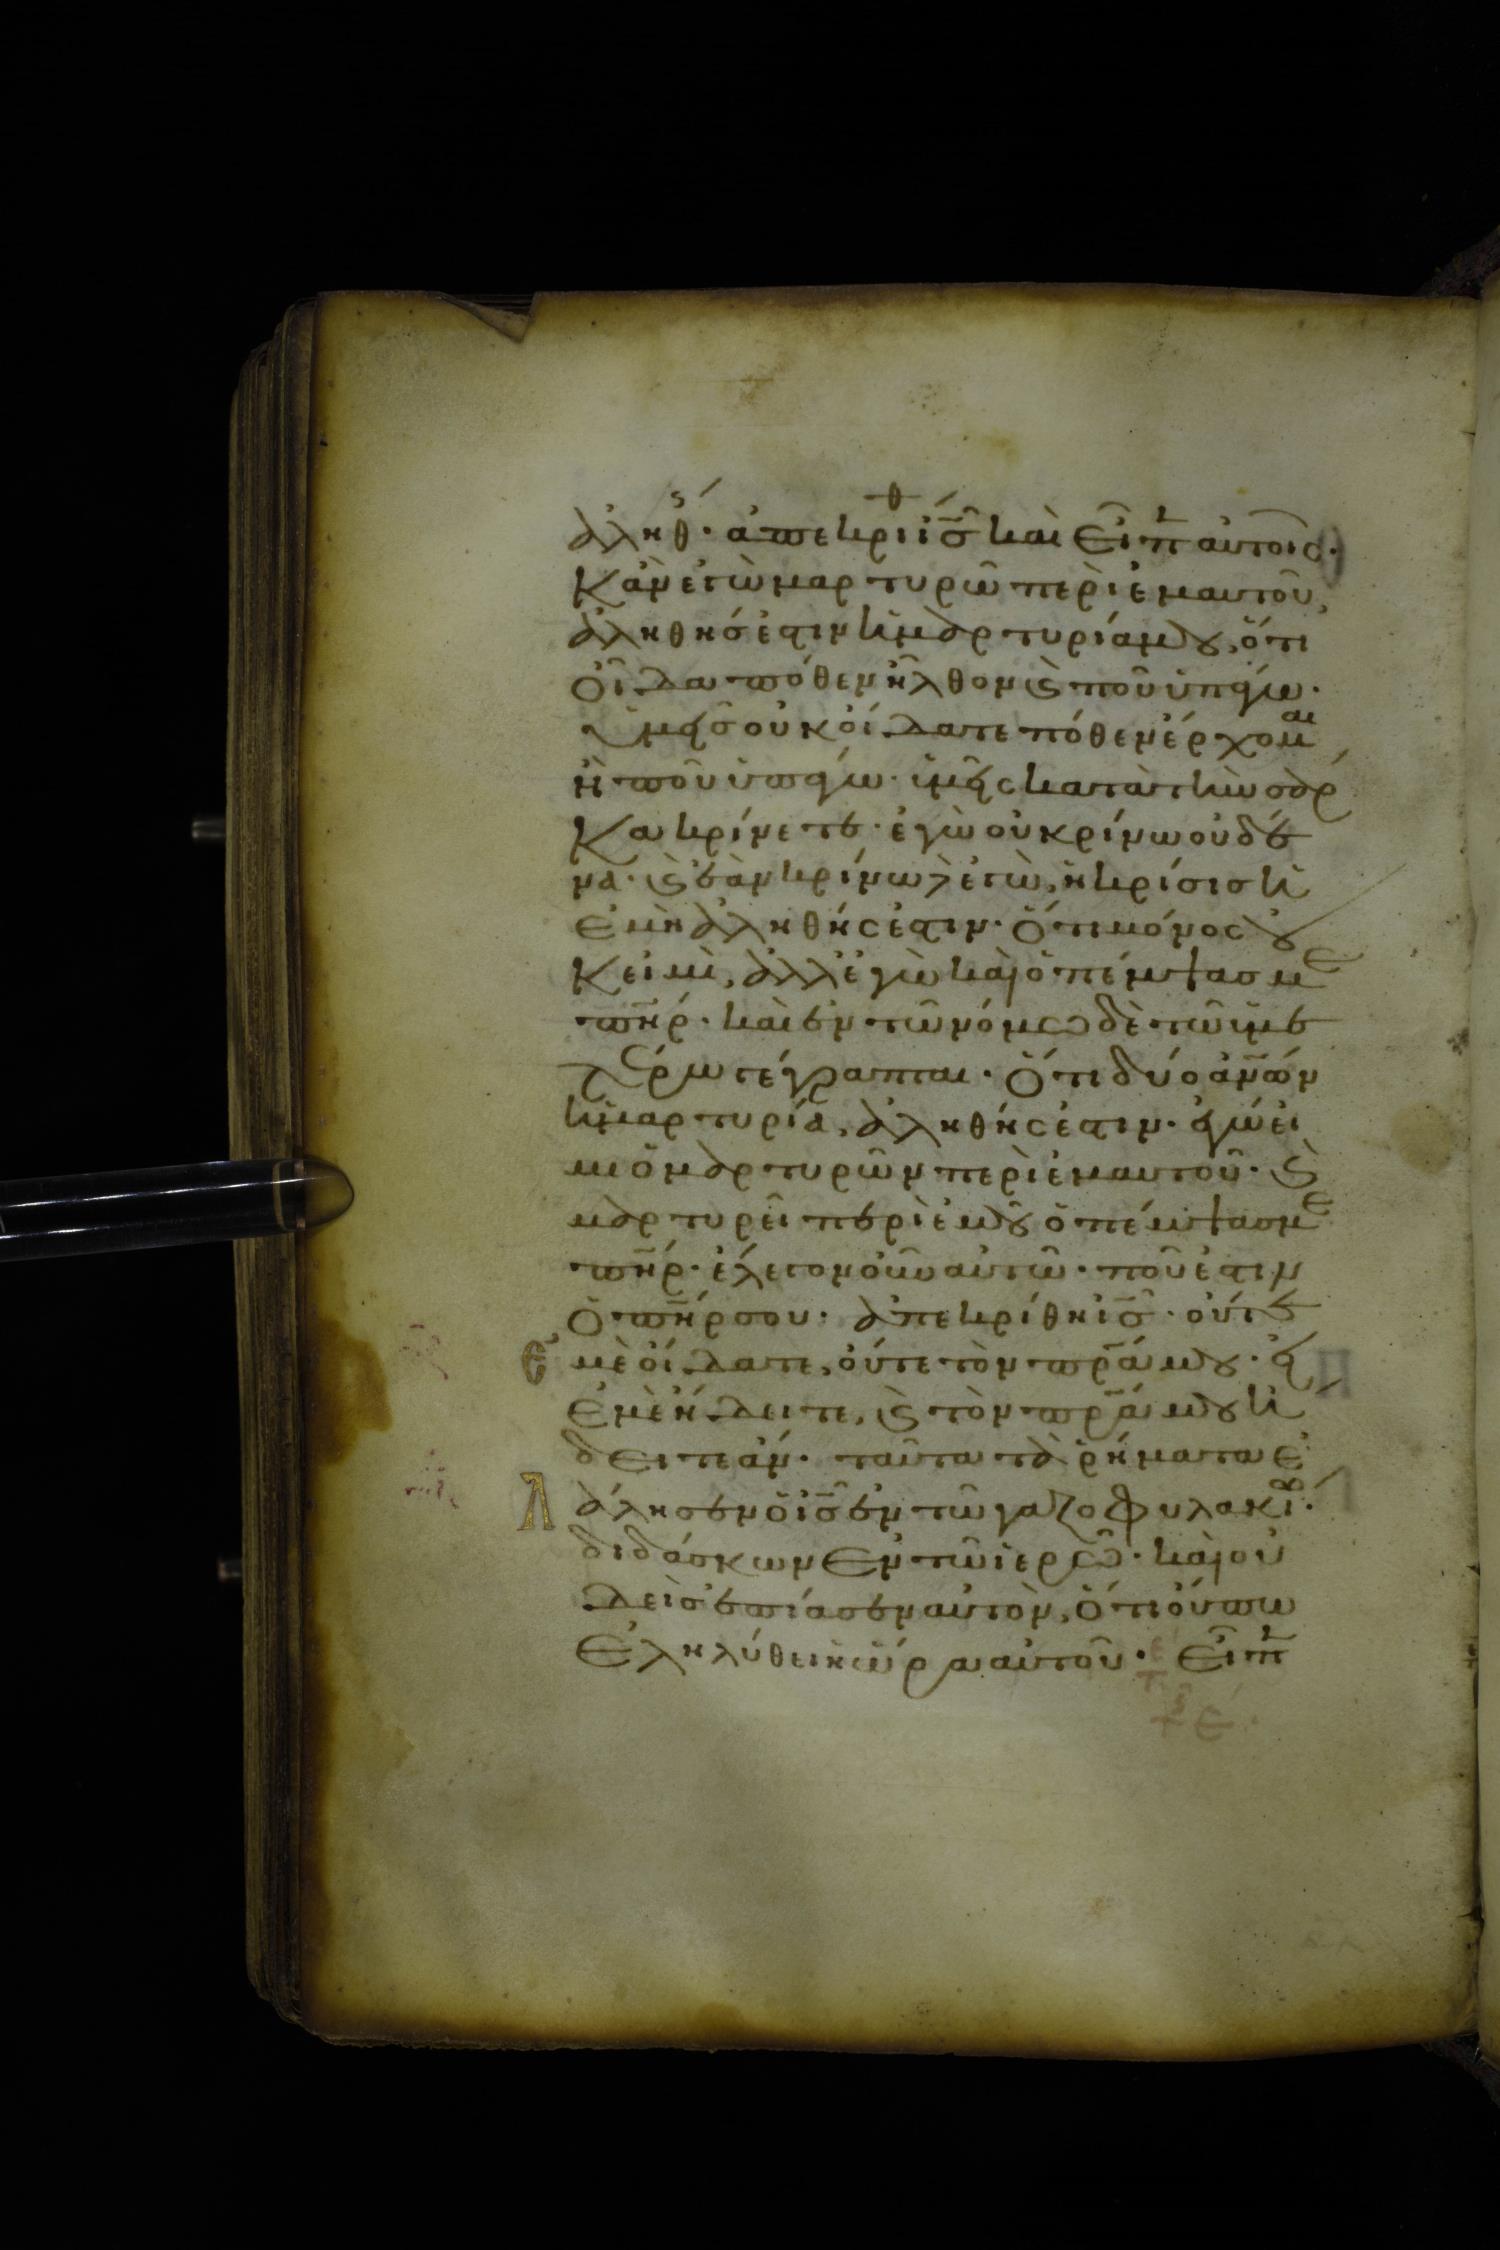 ἀληθής· ἀπεκρίθη ις̅ καὶ εἶπεν αὐτοῖς·
Κἀν ἐγὼ μαρτυρῶ περὶ ἐμαυτοῦ,
ἀληθής ἐστιν ἡ μαρτυρία μου, ὅτι
οἶδα πόθεν ἦλθον καὶ ποῦ ὑπάγω.
ὑμεῖς οὐκ οἴδατε πόθεν ἔρχομαι
ἢ ποῦ ὑπάγω· ὑμεῖς κατὰ τὴν σάρ
κα κρίνετε· ἐγὼ οὐ κρίνω οὐδέ
να· καὶ ἐὰν κρίνω δὲ ἐγὼ, ἡ κρίσις ἡ
ἐμὴ ἀληθής ἐστιν· ὅτι μόνος οὐ
κ εἰμὶ, ἀλλ' ἐγὼ καὶ ὁ πέμψας με
πη̅ρ· καὶ ἐν τῶ νόμω δὲ τῶ ὑμε
τέρω γέγραπται· ὅτι δύο αν̅ων
ἡ μαρτυρία, ἀληθής ἐστιν· ἐγώ εἰ
μι ὁ μαρτυρῶν περὶ ἐμαυτοῦ· καὶ
μαρτυρεῖ περὶ ἐμοῦ ὁ πέμψας με
πη̅ρ· ἔλεγον οὖν αὐτῶ· ποῦ ἐστιν
ὁ πη̅ρ σου· ἀπεκρίθη ις̅· οὔτε
ἐμὲ οἴδατε, οὔτε τὸν πρ̅α μου· εἰ
ἐμὲ ἤδειτε, καὶ τὸν πρ̅α μου ἤ
δειτε ἄν· ταῦτα τὰ ῥήματα ἐ
λάλησεν ὁ ις̅ ἐν τῶ γαζοφυλακίω·
διδάσκων ἐν τῶ ἱερῶ· καὶ οὐ
δεὶς ἐπίασεν αὐτὸν, ὅτι οὔπω
ἐληλύθει ἡ ὥρα αὐτοῦ· εἶπεν